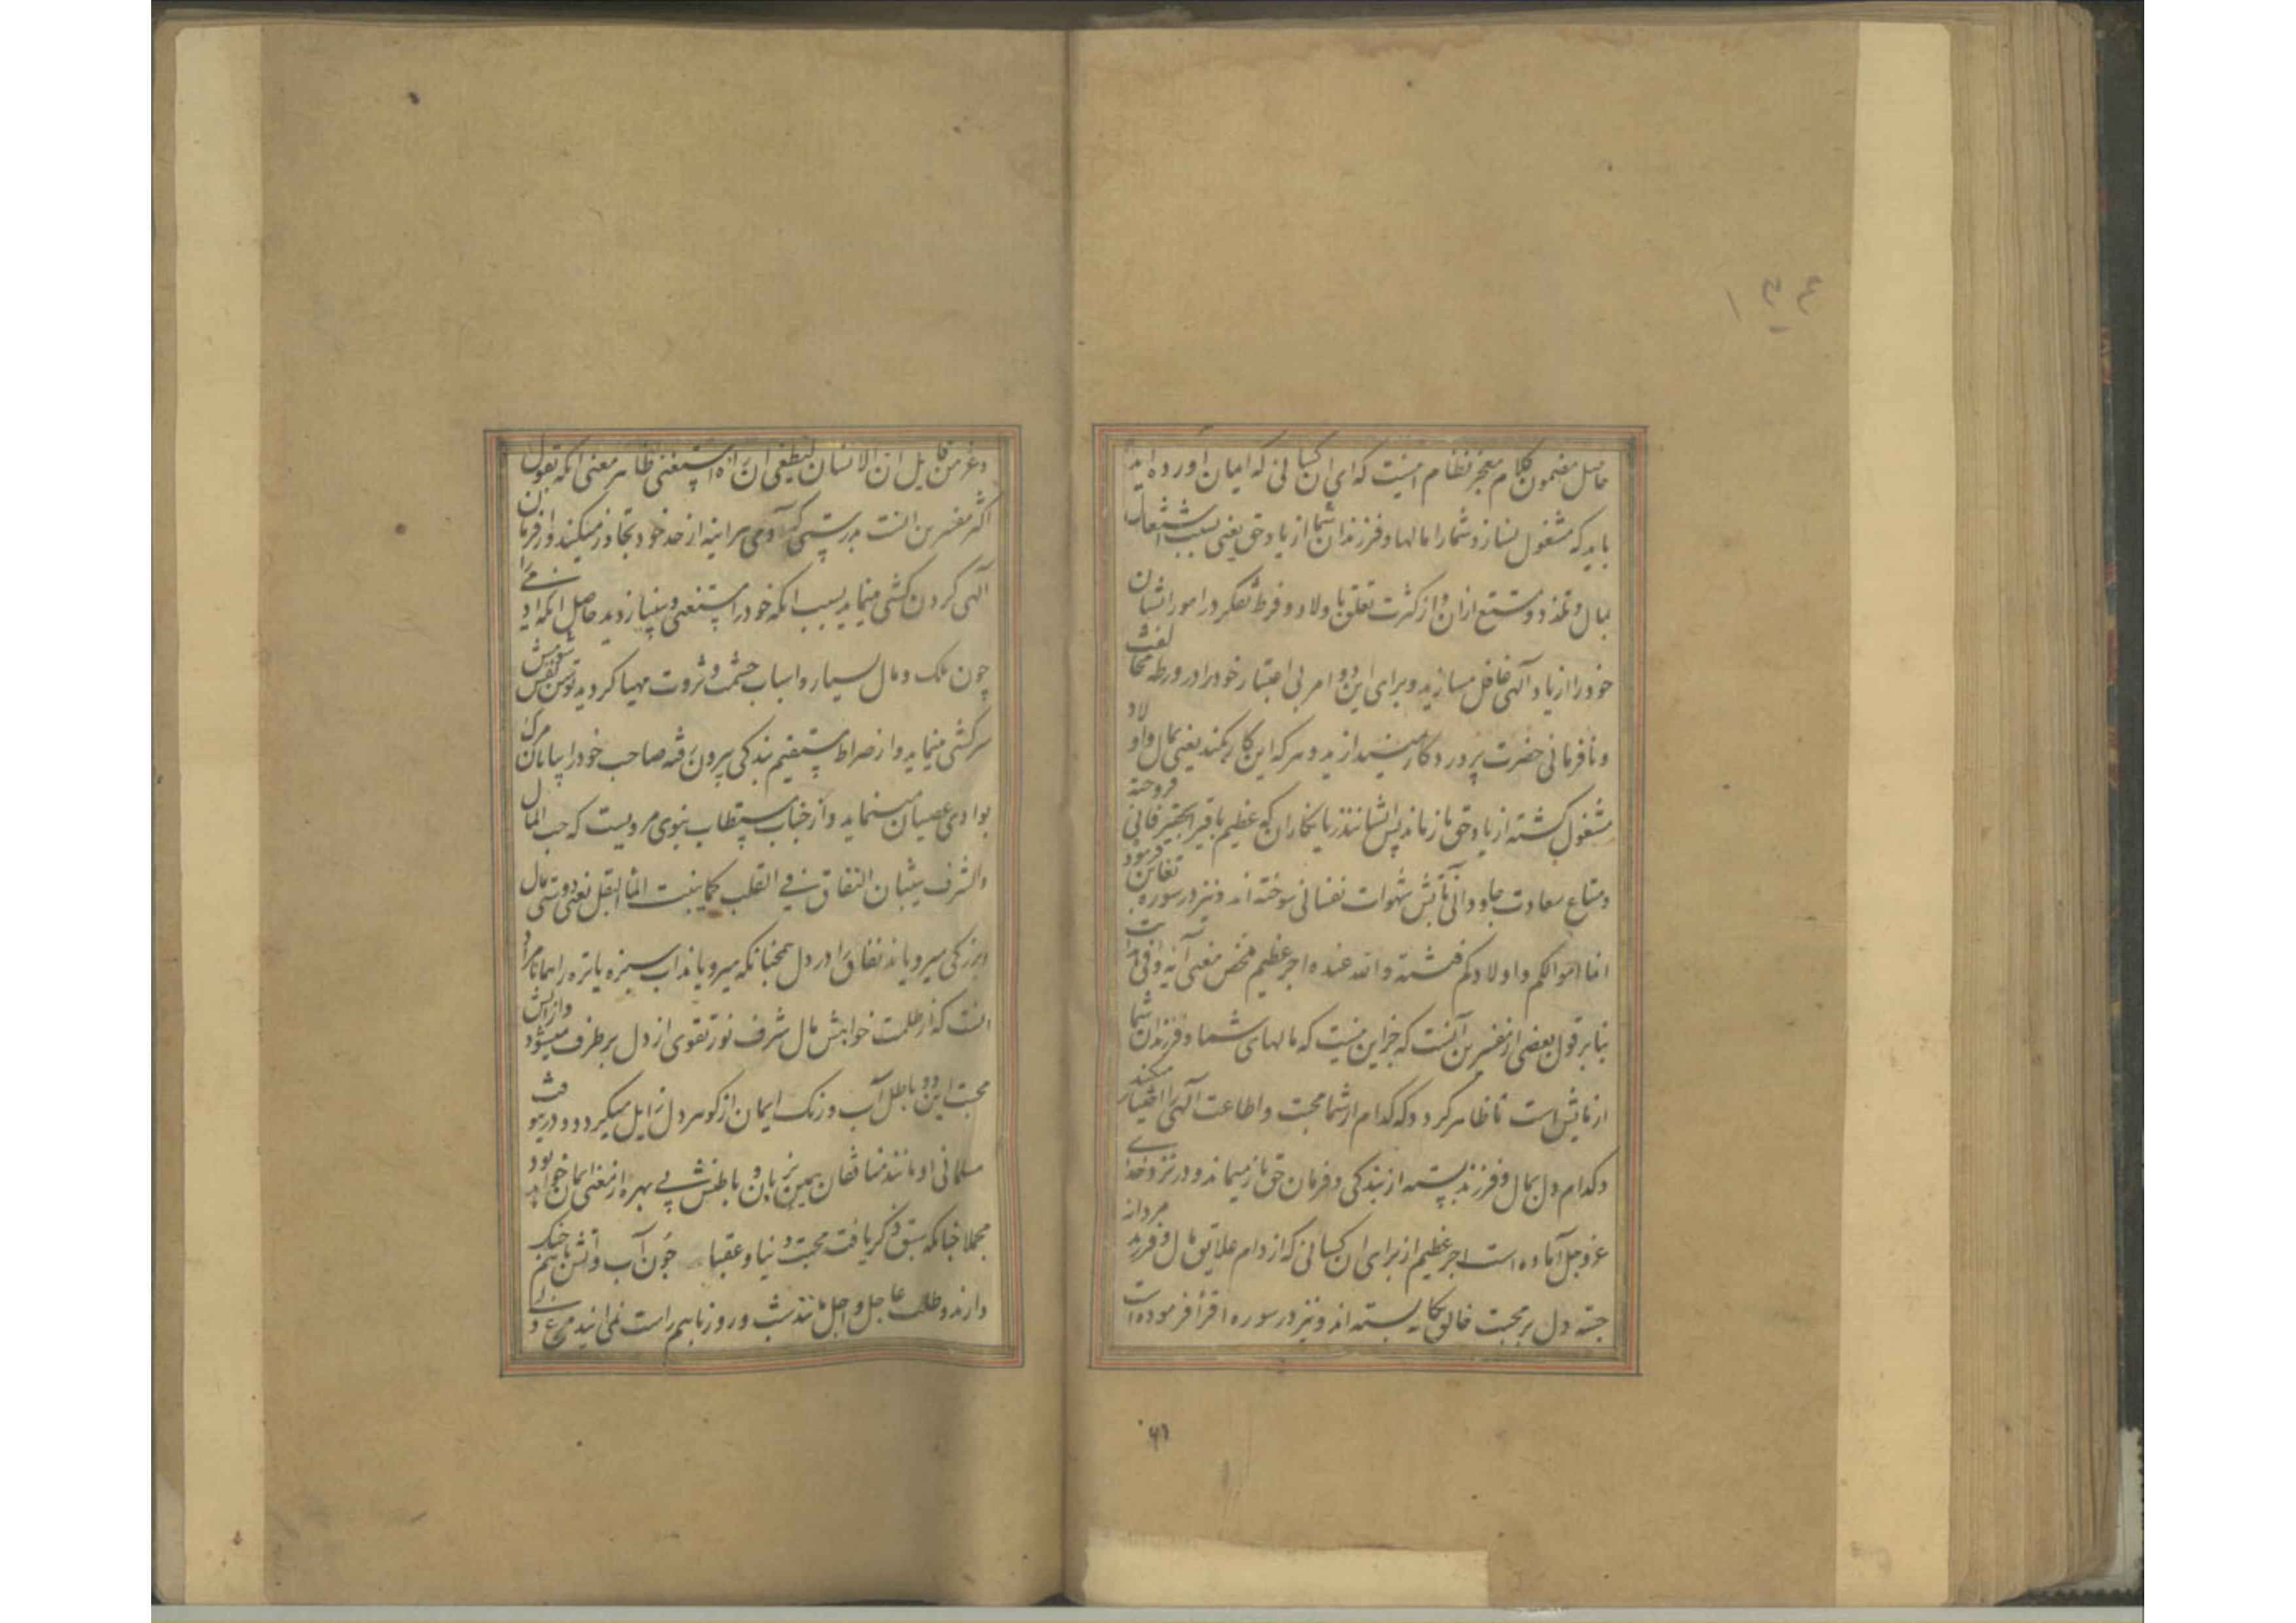 ۱۳۴
حاصل مضمون کلام معجز نظام اینست که ای ان کسانی که ایمان اورده اید
باید که مشغول نسازد شمارا مالها و فرزندان شما از یاد حق یعنی بسبب اشتغال
بمال و تلذذ و تمتع ازان و از کثرت تعلق با ولاد و فرط تفکر در امور ایشان
خود را از یاد الهی غافل مسازید و برای این دو امر بی اعتبار خود را در ورطه مخالفت
و نافرمانی حضرت پروردگار میندازید و هر که این کار بکند یعنی بمال و اولاد
مشغول گشته از یاد حق باز ماند پس ایشانند زیانکاران که عظیم باقی را بحقیر فانی فروخته
و متاع سعادت جاودانی بآتش شهوات نفسانی سوخته اند و نیز در سوره تغابن فرمود
انما اموالکم و اولادکم فتنة والله عنده اجر عظیم مخص معنی آیه وافی
بنا بر قول بعضی از مفسرین آنست که جز این نیست که مالهای شما و فرزندان شما
ازمایش است تا ظاهر گردد که کدام از شما محبت و اطاعت الهی را اختیار میکند
و کدام دل بمال و فرزند بسته از بندگی و فرمان حق باز میماند و در نزد خدای
عز و جل آماده است اجر عظیم از برای ان کسانی که از دام علایق مال و فرزند مردانه
جسته دل بر محبت خالق یکانه بسته اند و نیز در سوره اقرأ فرموده است
و عز من قایل ان الانسان لیطغی ان رآه استغنی ظاهر معنی آنکه بقول
اکثر مفسرین انست بدرستی که آدمی هر اینه از حد خود تجاوز میکند و از فرمان
الهی گردن کشی مینماید بسبب انکه خود را مستغنی و بینیاز دید حاصل انکه ادمی را
چون ملک و مال بسیار و اسباب حشمت و ثروت مهیا گردید توسن نفسش
سرکشی مینماید و از صراط مستقیم بندگی بیرون رفته صاحب خود را بپایان مرگ
بوادی عصیان میماند و از جناب مستطاب نبوی مرویست که حب المال
والشرف ینبتان النفاق فی القلب کما ینبت الماء البقل یعنی دوستی مال
و بزرگی میرویاند نفاق را در دل همچنانکه میرویاند آب سبزه یا تره را همانا مراد
انست که از ظلمت خواهش مال و شرف نور تقوی از دل بر طرف میشود
محبت این دو باطل آب و رنک ایمان از گوهر دل زایل میگردد
مسلمانی او مانند منافقان همین بزبان و باطنش بی بهره از معنی ایمان خواهد بود
مجملا چنانکه سبق ذکر یافت محبت دنیا و عقبا چون آب و آتش باهم جنک
دارند و طلب عاجل و اجل مانند شب و روز باهم راست نمی‌ایند